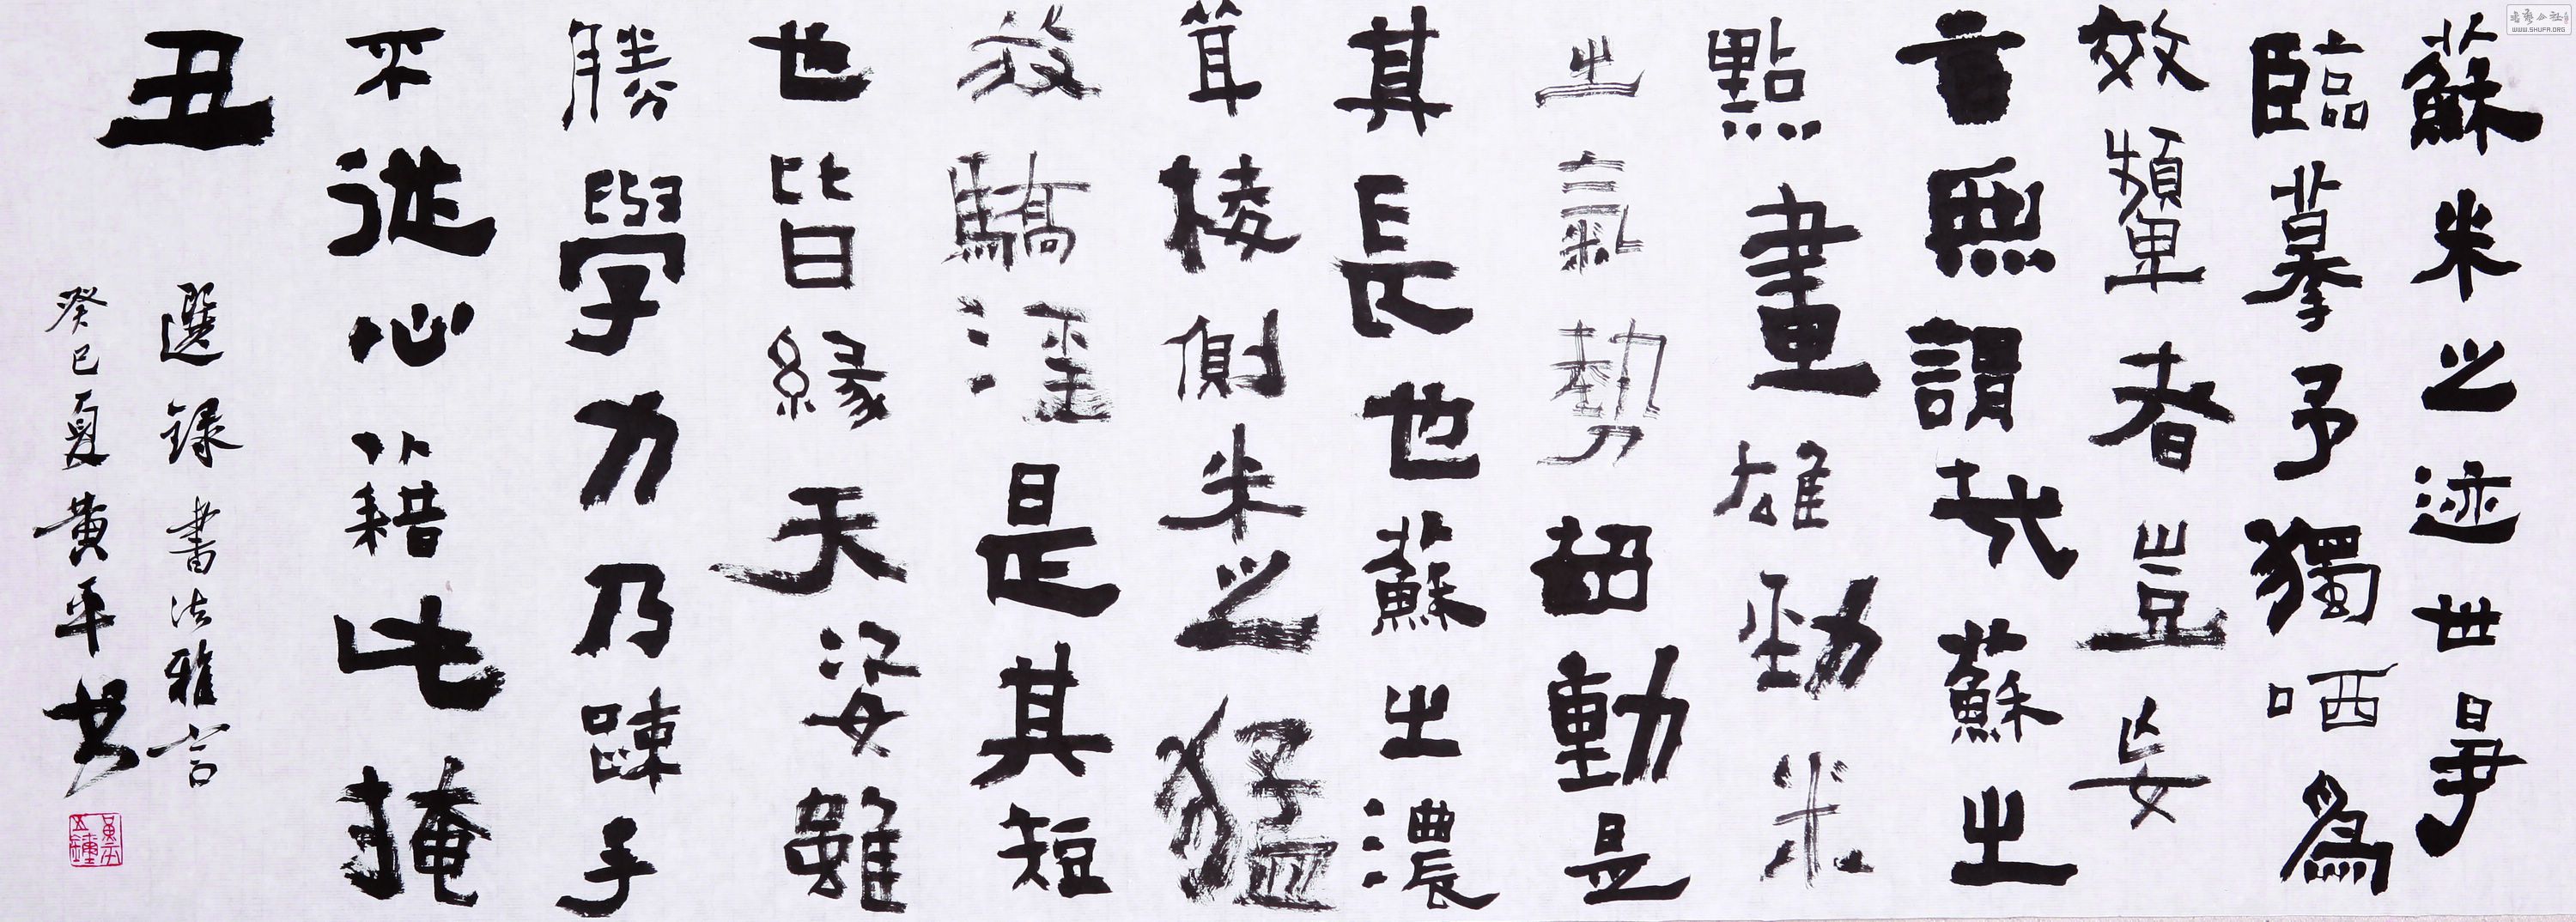 蘇米之迹世爭
臨摹予獨哂爲
效顰者豈妄
言無謂哉蘇之
點畫雄勁米
之氣勢超動是
其長也蘇之濃
茸棱側米之猛
放驕淫是其短
也皆緣天姿雖
勝學力乃踈手
不從心籍此掩
丑
選錄書法雅言
癸巳夏黃平書
WWW.SHUFA.ORG